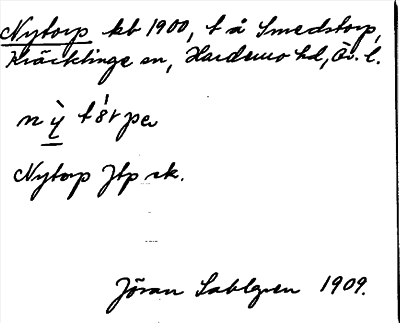 Nytorp kb 1900, t å Smedstorp,
Kräcklinge sn, Hardemo hd, Ör. l.
Nytorp Jtp sk.
Jöran Sahlgren 1909.